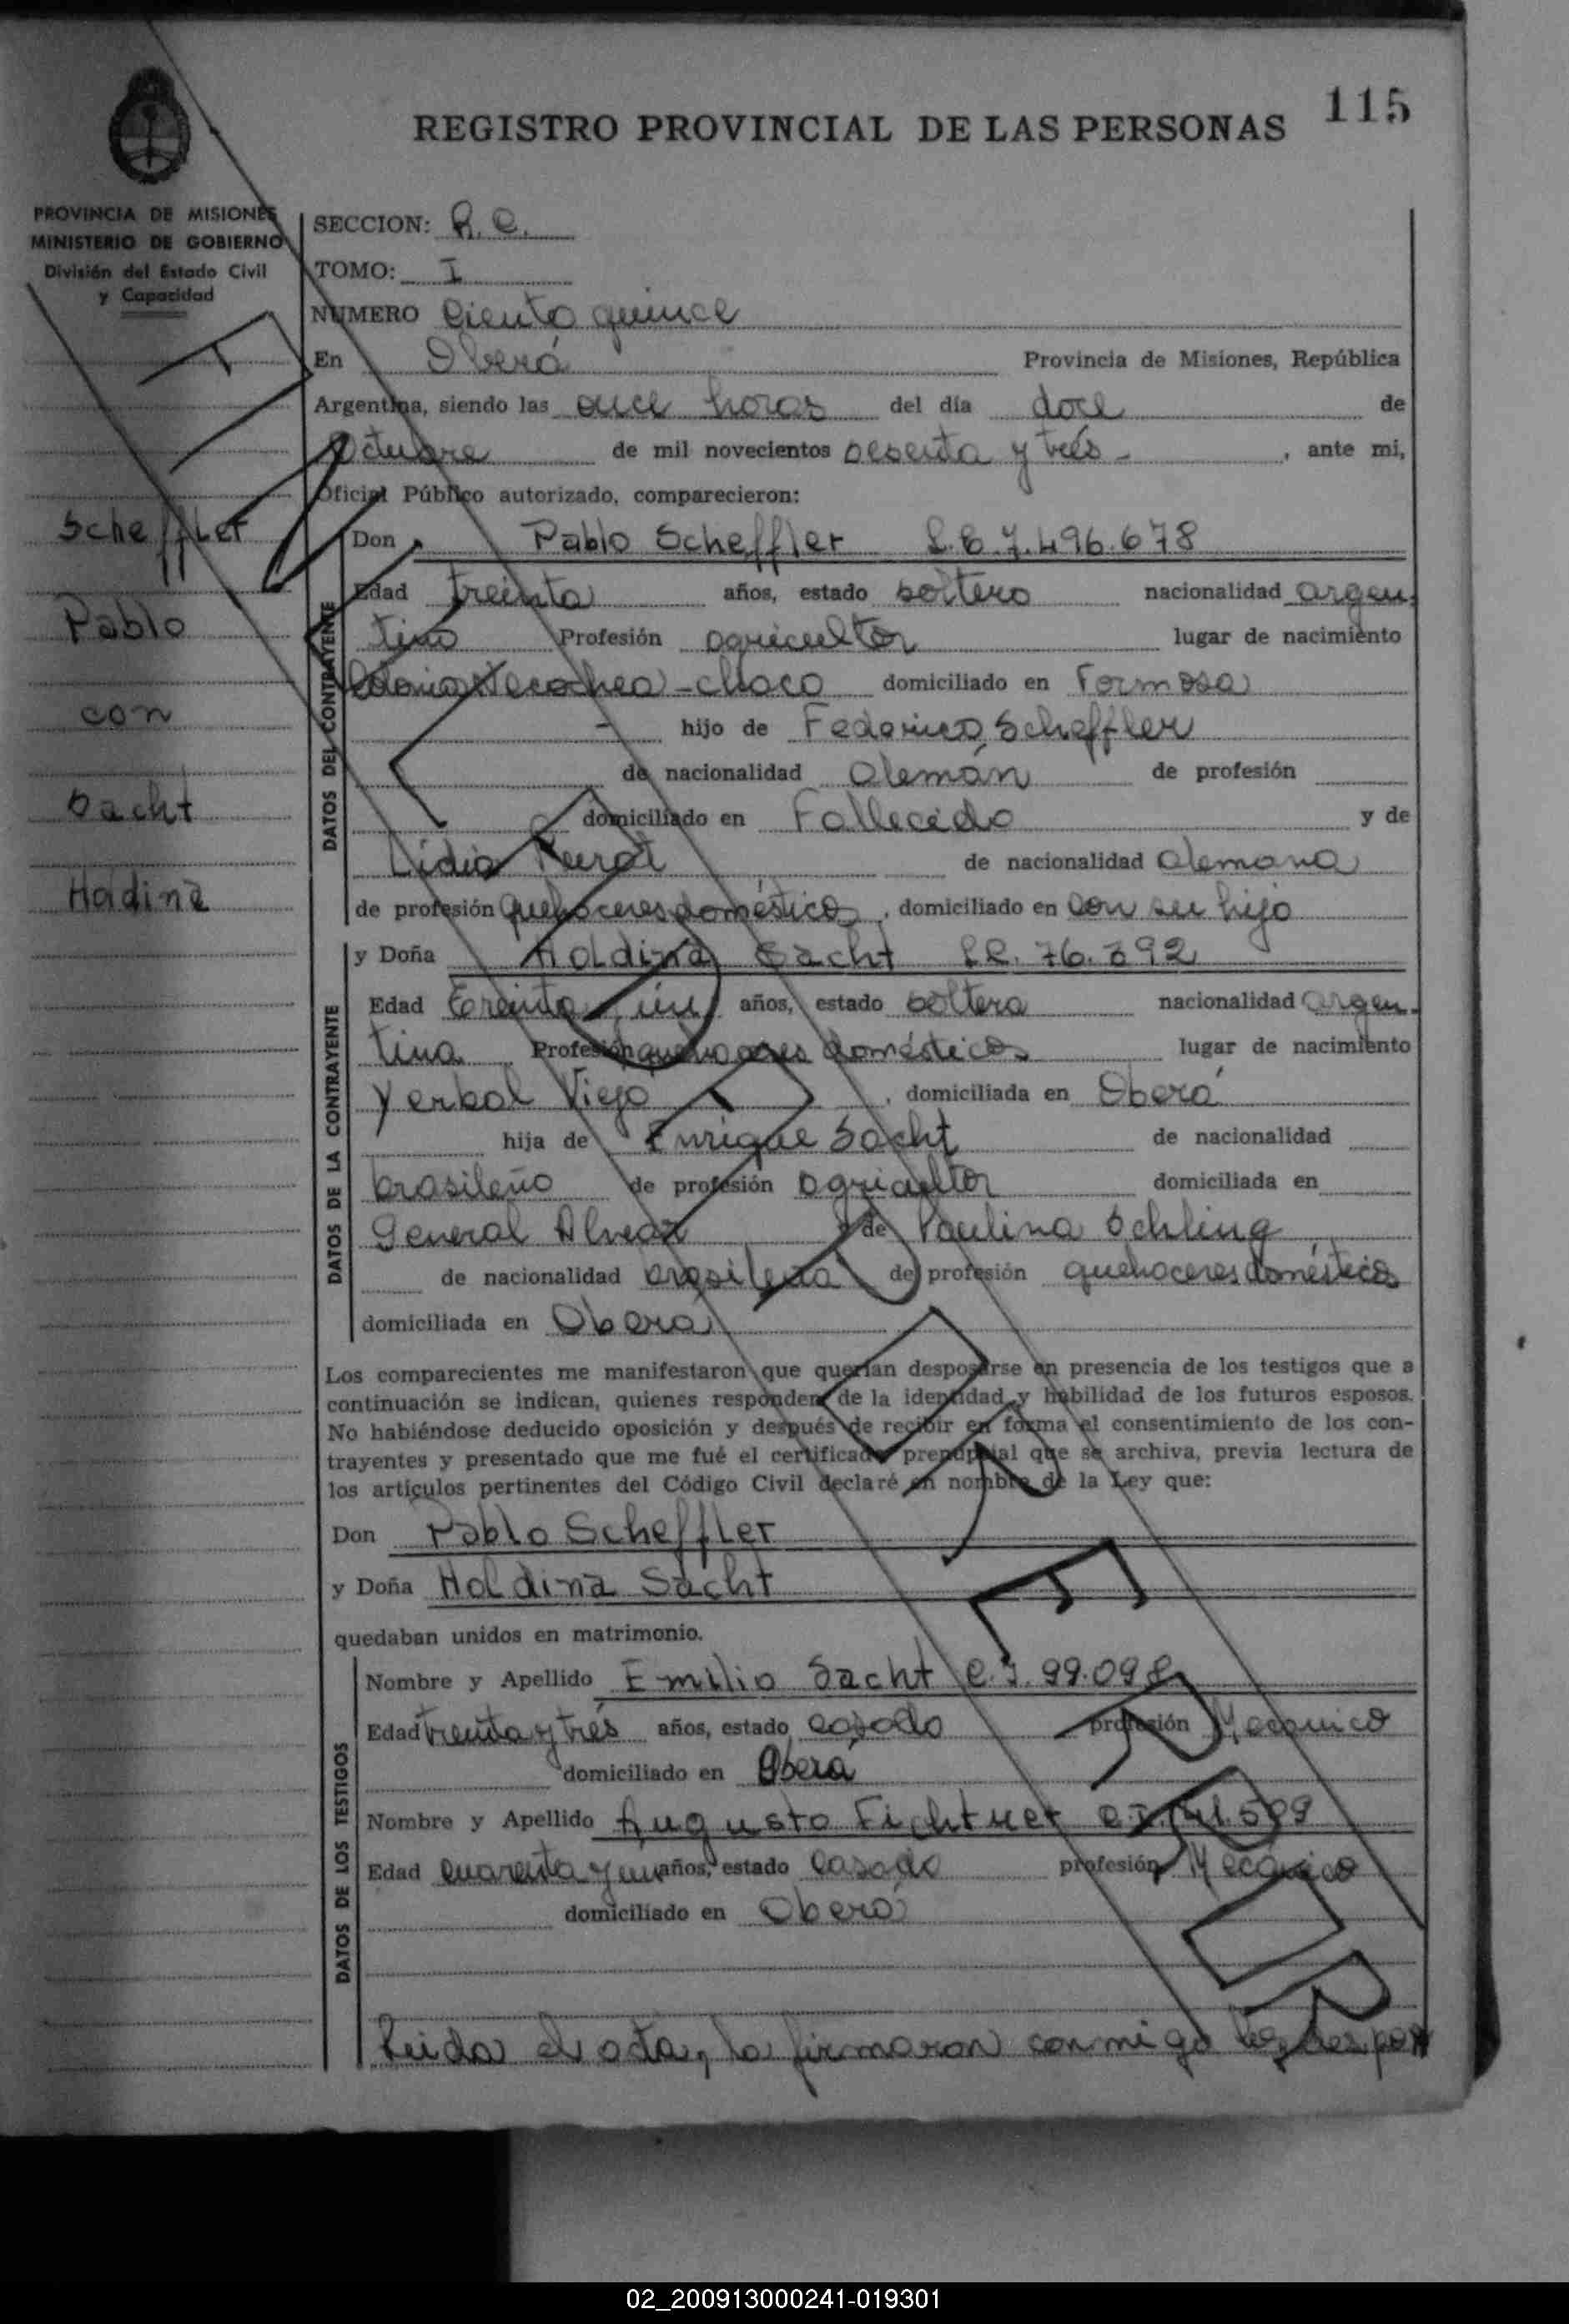 115
REGISTRO PROVINCIAL DE LAS PERSONAS
PROVINCIA DE MISIONES
MINISTERIO DE GOBIERNO
División del Estado Civil
y Capacidad
Scheffler
Pablo
con
Sacht
Holdina
SECCION: R. C.
TOMO: I
NUMERO Ciento quince
En Oberá Provincia de Misiones, República
Argentina, siendo las once horas del día doce de
Octubre de mil novecientos sesenta y trés - , ante mi,
Oficial Público autorizado, comparecieron:
DATOS DEL CONTRAYENTE
Don Pablo Scheffler L.E 7.496.678
Edad treinta años, estado soltero nacionalidad argen-
tino Profesión agricultor lugar de nacimiento
Colonia Necochea - chaco domiciliado en Formosa
- hijo de Federico Scheffler
de nacionalidad alemán de profesión
domiciliado en Fallecido y de
Lidia de nacionalidad alemana
de profesión quehaceres doméstico , domiciliado en con su hijo
DATOS DE LA CONTRAYENTE
y Doña Holdina Sacht L.C. 76.392
Edad Treinta y ún años, estado soltera nacionalidad argen-
tina Profesión quehaceres domésticos lugar de nacimiento
Yerbal Viejo , domiciliada en Oberá
hija de Enrique Sacht de nacionalidad
brasileño de profesión agricultor domiciliada en
General Alvear y de Paulina Schling
de nacionalidad brasileña de profesión quehaceres domésticos
domiciliada en Oberá
Los comparecientes me manifestaron que querían desposarse en presencia de los testigos que a
continuación se indican, quienes responden de la identidad y habilidad de los futuros esposos.
No habiéndose deducido oposición y después de recibir en forma el consentimiento de los con-
trayentes y presentado que me fué el certificado prenupcial que se archiva, previa lectura de
los artículos pertinentes del Código Civil declaré en nombre de la Ley que:
Don Pablo Scheffler
y Doña Holdina Sacht
quedaban unidos en matrimonio.
DATOS DE LOS TESTIGOS
Nombre y Apellido Emilio Sacht C.I. 99.098
Edad treinta y trés años, estado casado profesión Mecánico
domiciliado en Oberá
Nombre y Apellido Augusto Fichtner C.I. 141.509
Edad cuarenta y ún años, estado casado profesión Mecánico
domiciliado en Oberá
Leida el acta, la firmaron conmigo los despo
02_200913000241-019301